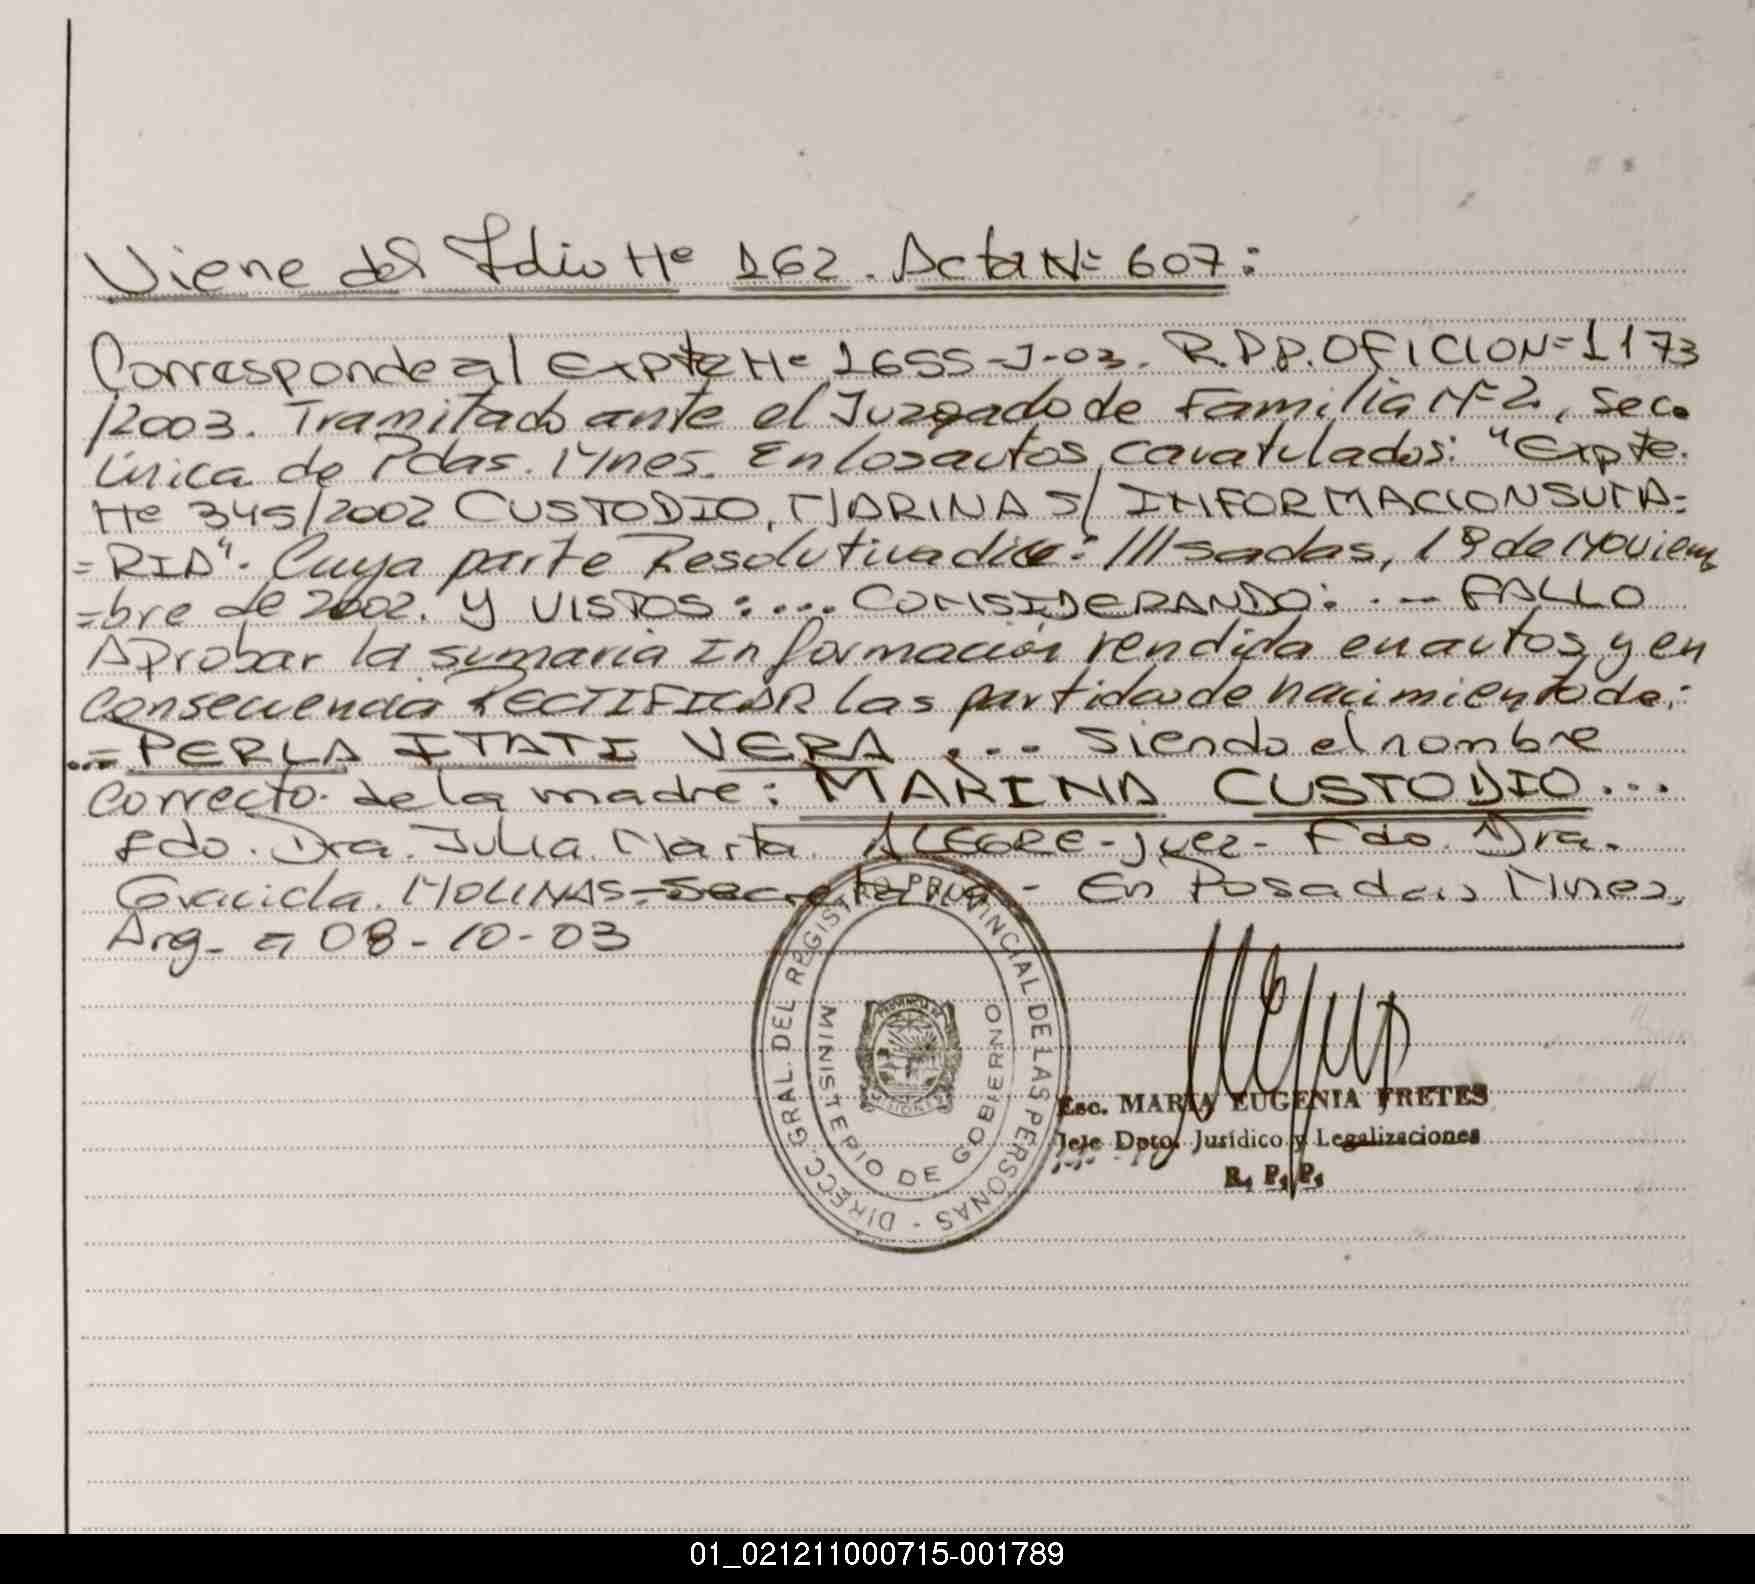 Viene del Folio Nº 162. Acta Nº 607:
Corresponde al Expte Nº 1655-J-03. R.P.P. OFICIO Nº 1173
/2003. Tramitado ante el Juzgado de Familia Nº 2, Sec.
única de Pdas. Mnes. En los autos caratulados: "Expte.
Nº 345/2002 CUSTODIO, MARINA S/ INFORMACION SUMA=
=RIA". Cuya parte Resolutiva dice: ///sadas, 18 de Noviem
=bre de 2002. Y VISTOS:... CONSIDERANDO: ... FALLO
Aprobar la sumaria Información rendida en autos y en
consecuencia RECTIFICAR las partidas de nacimiento de:
...= PERLA ITATI VERA ... Siendo el nombre
correcto de la madre: MARINA CUSTODIO...
Fdo. Dra. Julia Marta ALEGRE-Juez- Fdo. Dra.
Graciela MOLINAS=Secretaria- En Posadas, Mnes,
Arg- a 08-10-03
DIRECC. GRAL. DEL REGISTRO PROVINCIAL DE LAS PERSONAS -
MINISTERIO DE GOBIERNO
PROVINCIA DE
MISIONES
Esc. MARIA EUGENIA FRETES
Jefe Dpto. Jurídico y Legalizaciones
R. P. P.
01_021211000715-001789